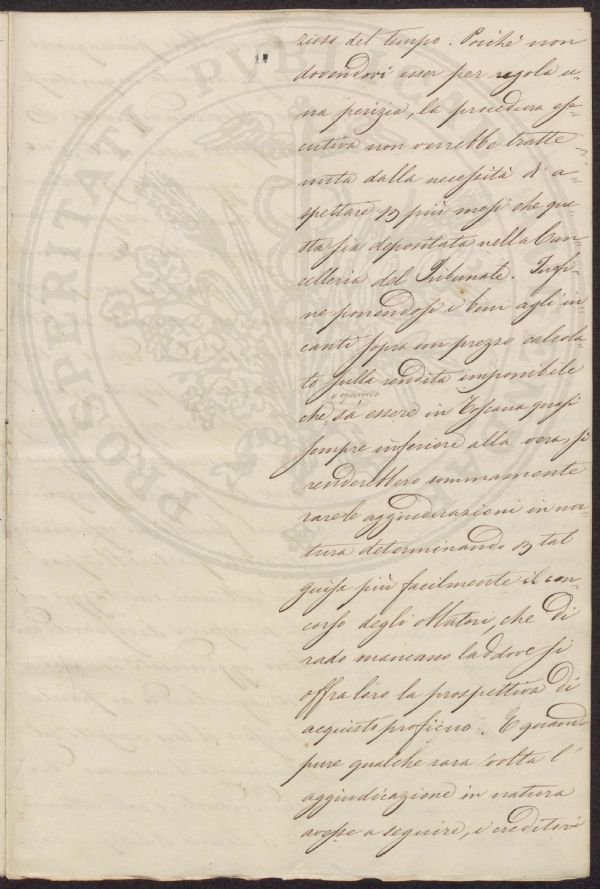 zioso del tempo. Poichè non
dovendovi esser per regola u=
na perizia, la procedura ese=
cutiva non verrebbe tratte=
nuta dalla necessità d'a=
spettare p più mesi che que=
sta sia depositata nella Can=
celleria del Tribunale. Infi=
ne ponendosi i beni agli in=
canti sopra un prezzo calcola=
to sulla rendita imponibile
ognuno
che, sà essere in Toscana quasi
sempre inferiore alla vera, si
renderebbero sommamente
rare le aggiudicazioni in na=
tura determinando p tal
guisa più facilmente il con=
corso degli Oblatori, che di
rado mancano laddove si
offra loro la prospettiva di
acquisto proficuo. E quando
pure qualche rara volta l'
aggiudicazione in natura
avesse a seguire, i creditori
PROSPERITATI PUBLICAE